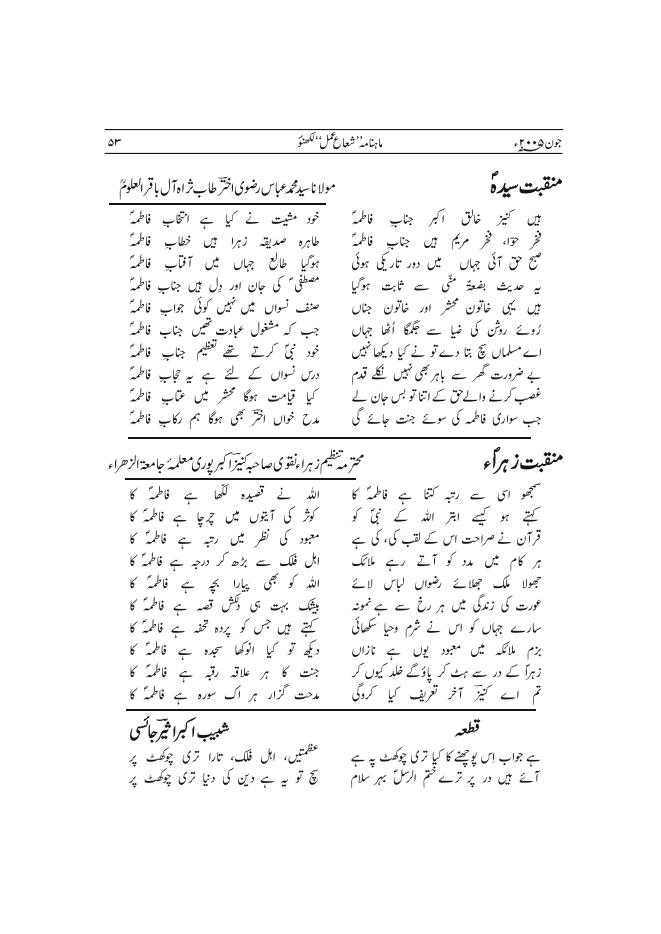 جون ۲۰۰۵ء ماہنامہ ’’شعاع عمل‘‘ لکھنؤ ۵۳
منقبت سیدہؑ مولانا سید محمد عباس رضوی اخترؔ طاب ثراہ آل باقر العلومؒ
ہیں کنیز خالق اکبر جناب فاطمہؑ خود مشیت نے کیا ہے انتخاب فاطمہؑ
فخر حوّا، فخر مریم ہیں جناب فاطمہؑ طاہرہ صدیقہ زہرا ہیں خطاب فاطمہؑ
صبح حق آئی جہاں میں دور تاریکی ہوئی ہوگیا طالع جہاں میں آفتاب فاطمہؑ
یہ حدیث بضعۃ منّی سے ثابت ہوگیا مصطفیٰؐ کی جان اور دل ہیں جناب فاطمہؑ
ہیں یہی خاتون محشر اور خاتون جناں صنف نسواں میں نہیں کوئی جواب فاطمہؑ
رُوئے روشن کی ضیا سے جگمگا اُٹھا جہاں جب کہ مشغول عبادت تھیں جناب فاطمہؑ
اے مسلماں سچ بتا دے تو نے کیا دیکھا نہیں خود نبیؐ کرتے تھے تعظیم جناب فاطمہؑ
بے ضرورت گھر سے باہر بھی نہیں نکلے قدم درس نسواں کے لئے ہے یہ حجاب فاطمہؑ
غصب کرنے والے حق کے اتنا تو بس جان لے کیا قیامت ہوگا محشر میں عتاب فاطمہؑ
جب سواری فاطمہ کی سوئے جنت جائے گی مدح خواں اخترؔ بھی ہوگا ہم رکاب فاطمہؑ
منقبت زہراؑء محترمہ تنظیم زہراء نقوی صاحبہ کنیزؔ اکبرپوری معلمۂ جامعۃ الزھراء
سمجھو اسی سے رتبہ کتنا ہے فاطمہؑ کا اللہ نے قصیدہ لکّھا ہے فاطمہؑ کا
کہتے ہو کیسے ابتر اللہ کے نبیؐ کو کوثر کی آیتوں میں چرچا ہے فاطمہؑ کا
قرآن نے صراحت اس کے لقب کی، کی ہے معبود کی نظر میں رتبہ ہے فاطمہؑ کا
ہر کام میں مدد کو آتے رہے ملائک اہل فلک سے بڑھ کر درجہ ہے فاطمہؑ کا
جھولا ملک جھلائے رضواں لباس لائے اللہ کو بھی پیارا بچہ ہے فاطمہؑ کا
عورت کی زندگی میں ہر رخ سے ہے نمونہ بیشک بہت ہی دلکش قصہ ہے فاطمہؑ کا
سارے جہاں کو اس نے شرم وحیا سکھائی کہتے ہیں جس کو پردہ تحفہ ہے فاطمہؑ کا
بزم ملائکہ میں معبود یوں ہے نازاں دیکھو تو کیا انوکھا سجدہ ہے فاطمہؑ کا
زہراؑ کے در سے ہٹ کر پاؤگے خلد کیوں کر جنت کا ہر علاقہ رقبہ ہے فاطمہؑ کا
تم اے کنیزؔ آخر تعریف کیا کروگی مدحت گزار ہر اک سورہ ہے فاطمہؑ کا
قطعہ شبیب اکبر اثیرؔ جائسی
ہے جواب اِس پوچھنے کا کیا تری چوکھٹ پہ ہے عظمتیں، اہل فلک، تارا تری چوکھٹ پر
آئے ہیں در پر ترے ختم الرسلؐ بہر سلام سچ تو یہ ہے دین کی دنیا تری چوکھٹ پر